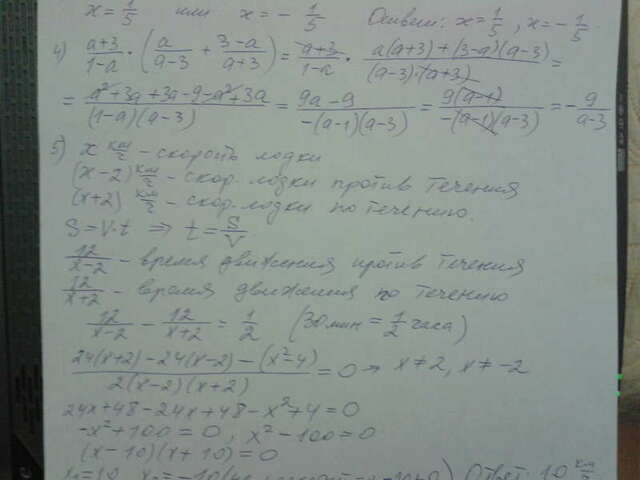 x = 1/5 или x = - 1/5 Ответ: x = 1/5, x = - 1/5.
4) (a+3)/(1-a) · (a/(a-3) + (3-a)/(a+3)) = (a+3)/(1-a) · (a(a+3)+(3-a)(a-3))/((a-3)·(a+3)) =
= (a²+3a+3a-9-a²+3a)/((1-a)(a-3)) = (9a-9)/(-(a-1)(a-3)) = (9(a-1))/(-(a-1)(a-3)) = - 9/(a-3)
5) x км/ч - скорость лодки
(x-2) км/ч - скор. лодки против течения
(x+2) км/ч - скор. лодки по течению.
S=V·t ⇒ t = S/V
12/(x-2) - время движения против течения
12/(x+2) - время движения по течению
12/(x-2) - 12/(x+2) = 1/2 (30 мин = 1/2 часа)
(24(x+2)-24(x-2)-(x²-4))/(2(x-2)(x+2)) = 0 → x≠2, x≠-2
24x+48-24x+48-x²+4=0
-x²+100=0, x²-100=0
(x-10)(x+10)=0
x₁=10 x₂=-10 Ответ: 10 км